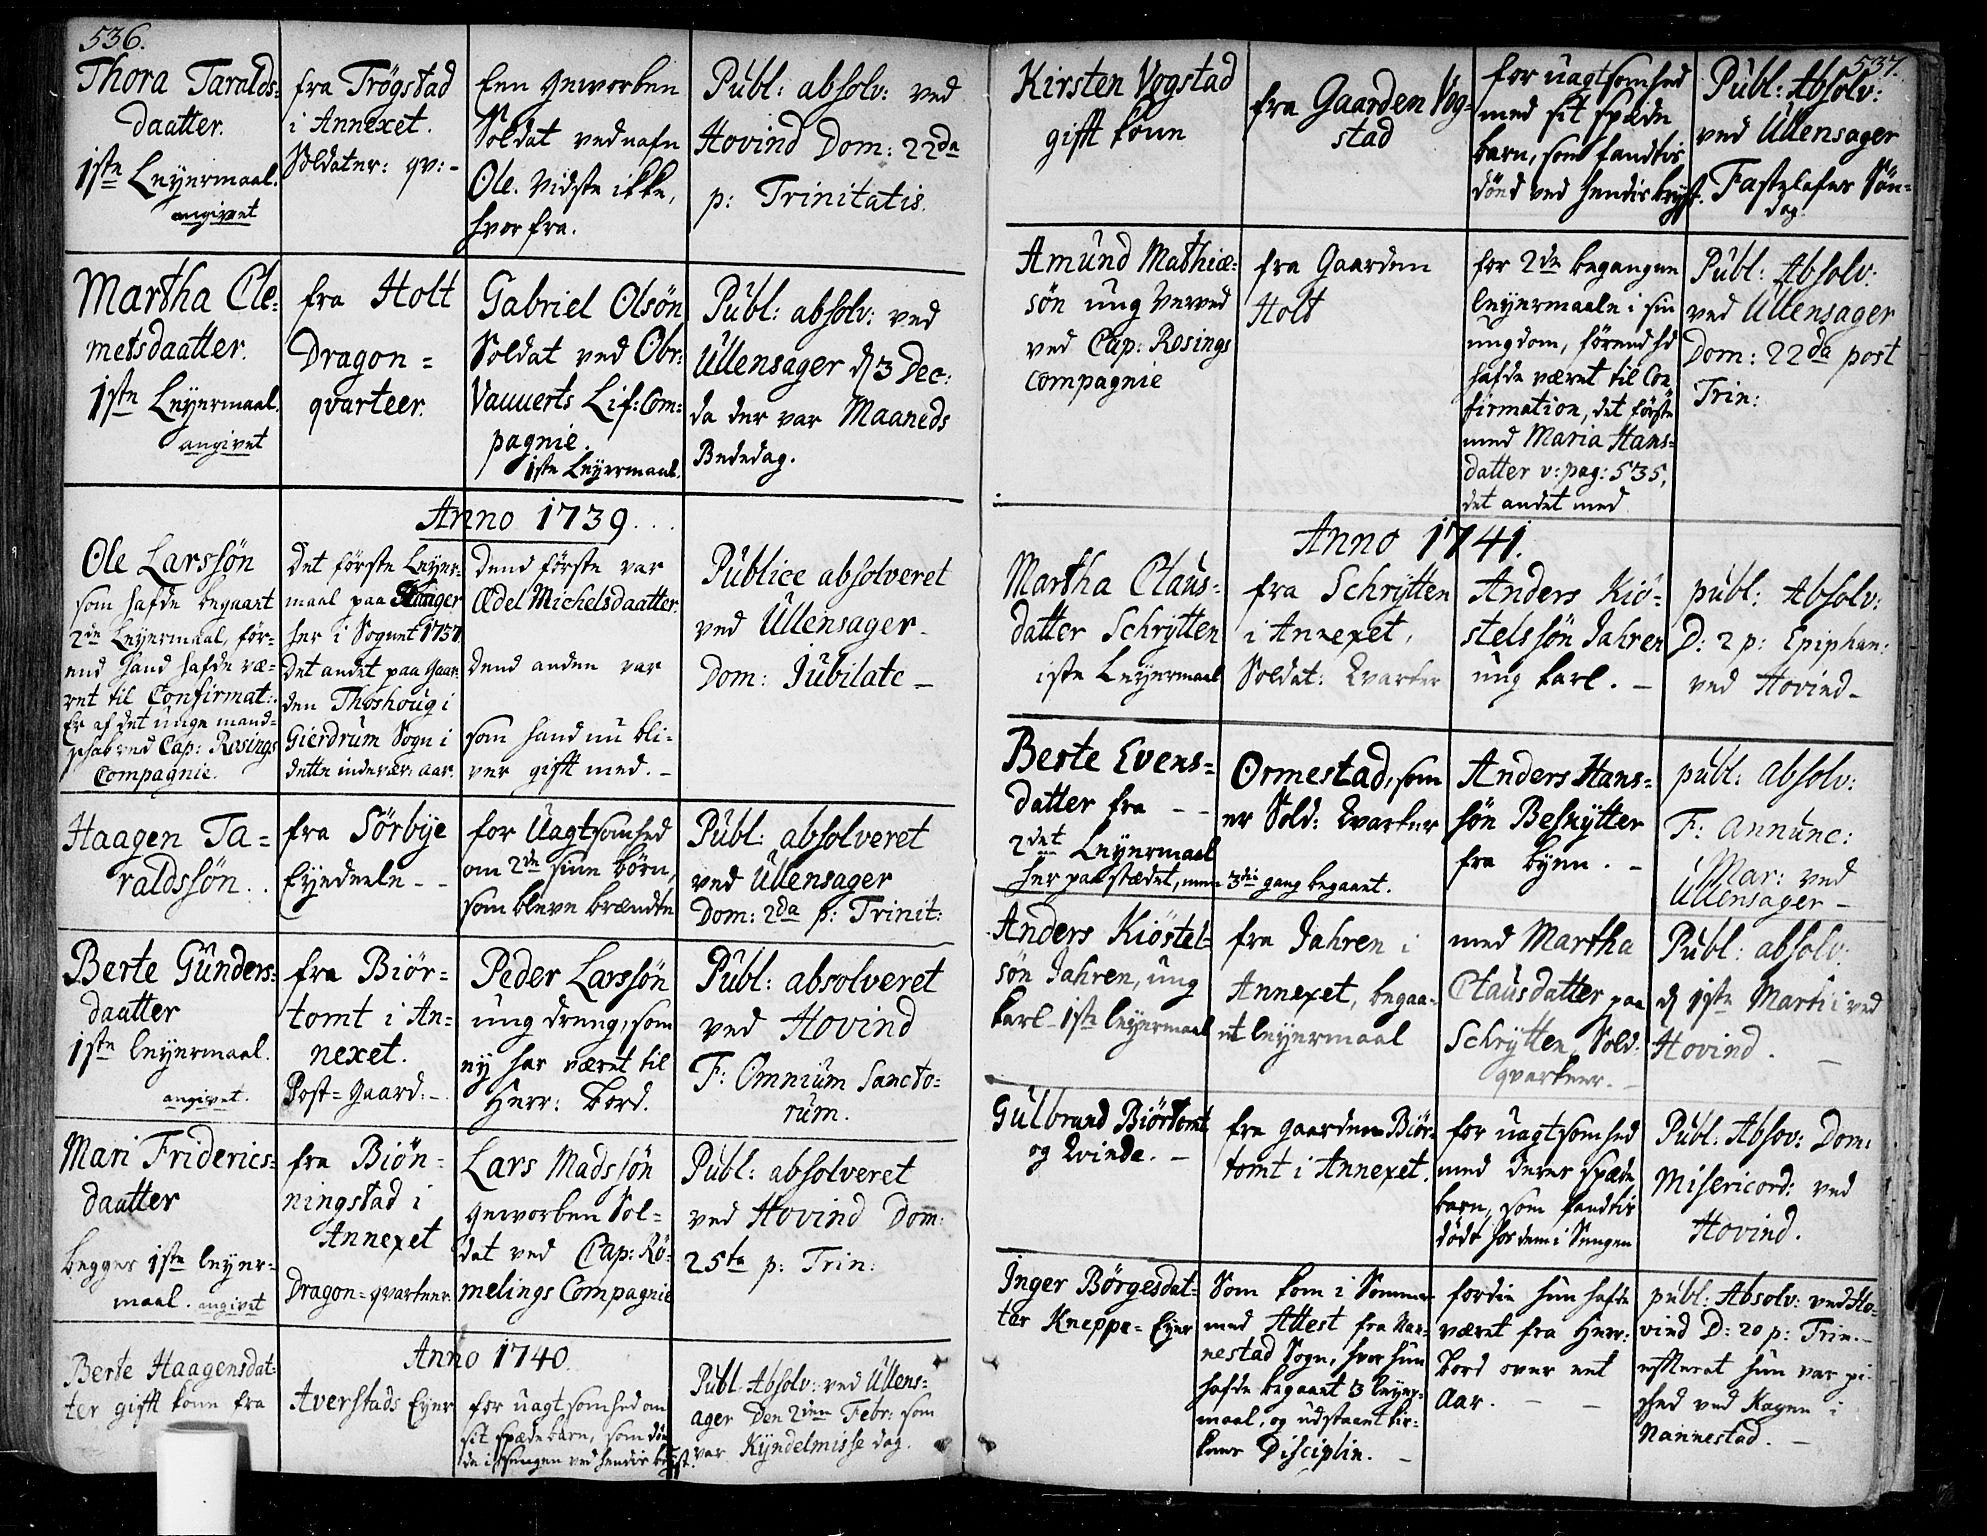 536.
Thora Taralds=
daatter.
1ste Leÿermaal.
angivet
fra Trögstad
i Annexet.
Soldater: qv:-
Een geworben
Soldat ved nafn
Ole. Vidste ikke,
hvor fra.
Publ: absolv: ved
Hovind Dom: 22da
p: Trinitatis.
Martha Cle=
metsdaatter.
1ste Leÿermaal.
angivet
fra Holt
Dragon=
qvarteer.
Gabriel Olsøn
Soldat ved Obr:
Vauuerts Lif=Com=
pagnie.
1ste Leÿermaal.
Publ: absolv: ved
Ullensager d 3 Dec:
da der var Maaneds
Bededag.
Anno 1739...
Ole Larssøn
som hafde begaaet
2de Leÿermaal, för=
end hand hafde væ=
ret til Confirmat:.
Er af det unge mand=
schab ved Cap: Rosings
Compagnie.
Det förste Leÿer=
maal paa Haager
her i Sognet 1737.
Det andet paa Gaar=
den Thoshoug i
Gierdrum Sogn i
dette indevær: aar.
Dend förste var
Ædel Michelsdaatter.
Dend anden var
som hand nu bli=
ver gifft med. -
Publice absolveret
ved Ullensager-
Dom: Jubilate -
Haagen Ta=
raldssøn..
fra Sörbÿe
Eÿedeele - -
for Uagtsomhed
om 2de sine börn,
som bleve brændte
Publ: absolveret
ved Ullensager
Dom: 2da p: Trinit:
Berte Gunders=
daatter
1ste leÿermaal.
angivet.
fra Biör=
tomt i An=
nexet.
Post=gaard:-
Peder Larssøn
ung dreng, som
nÿ har været til
Herr: bord.
Publ: absolveret
ved Hovind
F: Omnium Sancto=
rum.
Mari Friderics=
daatter
begges 1ste leÿer=
maal. angivet
fra Biön=
ningstad i
Annexet
Dragon=qvarteer.
Lars Madssøn
geworben Sol=
dat ved Cap: Rö=
melings Compagnie
Publ: absolveret
ved Hovind Dom:
25ta p: Trin:
Anno 1740.
Berte Haagensdat=
ter gifft kone fra
Averstads Eÿer
for uagtsomhed om
sit spæde barn, som dö=
de i Sengen ved hendis brÿst.
Publ. Absolv: ved Ullens=
ager Den 2den Febr: som
var Kÿndelmisse dag.
537.
Kirsten Vogstad
gifft kone
fra Gaarden Vog=
stad
for uagtsomhed
med sit spæde
barn, som fandtis
dönd ved hendis brÿst.
Publ: Absolv:
ved Ullensager
Fastelafns Sön=
dag.
Amund Mathiæ=
søn ung Verved
ved Cap: Rosings
Compagnie
fra Gaarden
Holt
for 2de begangne
leÿermaale i sin
ungdom, förend hd
hafde været til Con
firmation, det förste
med Maria Hans=
datter v: pag: 535,
det andet med
Publ: Absolv:
ved Ullensager
Dom: 22da post
Trin:
Anno 1741.
Martha Claus=
datter Schrÿtten
1ste Leÿermaal
fra Schrÿtten
i Annexet,
Soldat: Qvarter
Anders Kiö=
stelssøn Jahren
ung karl. -
publ: Absolv:
D: 2 p: Epiphan:
ved Hovind-
Berte Evens=
datter fra - -
2det Leÿermaal
her paa stædet, men 3die gang begaaet.
Ormestad, som
er Sold: Qvarter
Anders Hans=
søn Beskÿtter
fra bÿen. -
publ: absolv:
F: Annunc:
Mar: ved
Ullensager -
Anders Kiöstel=
søn Jahren, ung
karl- 1ste leÿermaal
fra Jahren i
Annexet, begaa=
et leÿermaal
med Martha
Clausdatter paa
Schrÿtten, Sold:
qvarteer. -
Publ: absolv:
d 1ste Martii ved
Hovind. -
Gulbrand Biörtomt
og Qvinde. -
fra gaarden Biör=
tomt i Annexet.
for uagtsomhed
med deres spæde
barn, som fandtis
dödt hos dem i Sengen
Publ: Absov: Dom:
Misericord: ved
Hovind.
Inger Börgesdat=
ter Kneppe=Eÿer
Som kom i Sommer
med Attest fra Nan=
nestad Sogn, hvor hun
hafde begaaet 3 leÿer=
maal, og udstaaet kir=
kens Disciplin. -
fordi hun hafde
været fra Herr:
bord over eet
Aar. - -
publ: Absolv: ved Ho=
vind D: 20 p: Trin.-
effterat hun var pi=
sked ved Kagen i
Nannestad. -